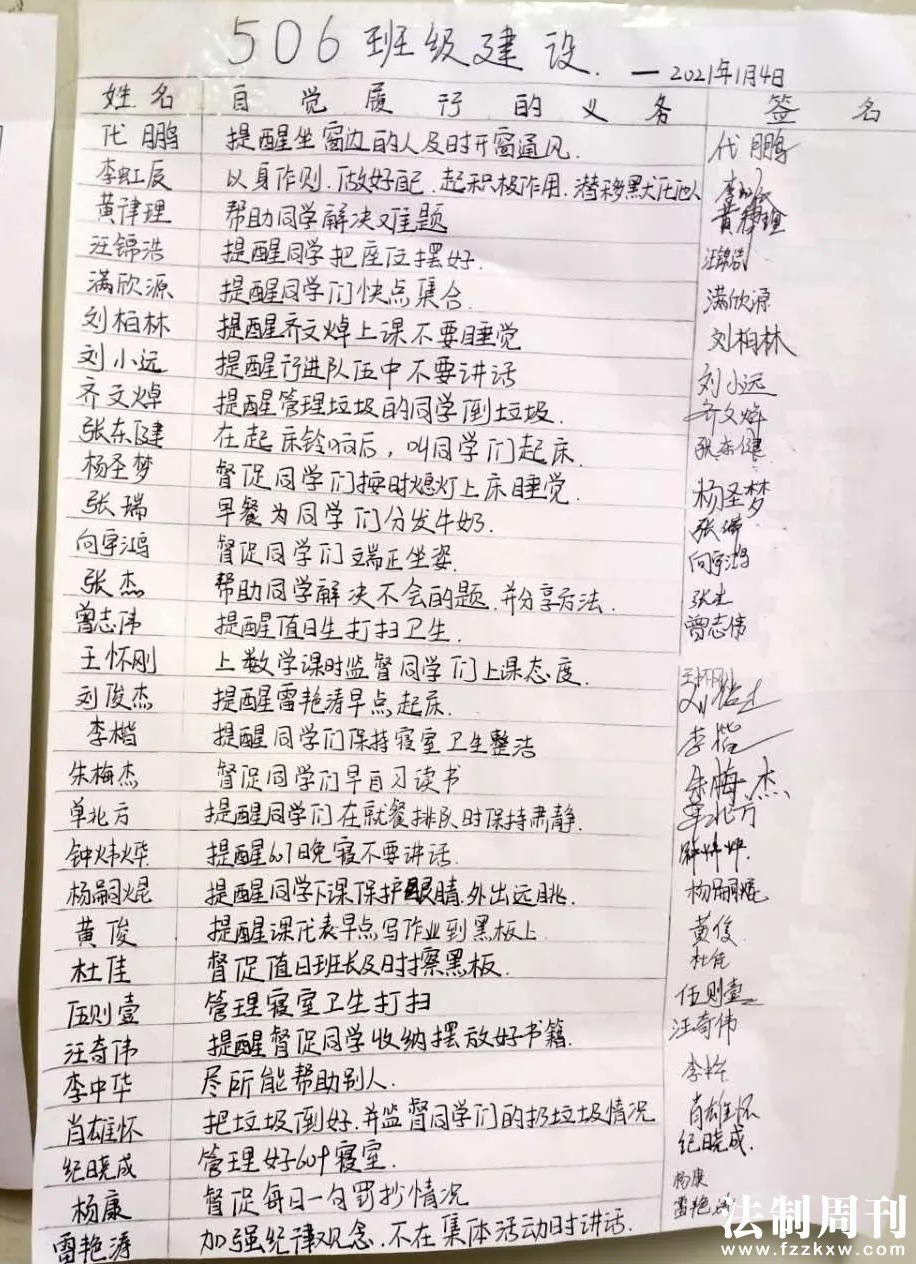 506班级建设. — 2021年1月4日
姓名 自觉履行的义务 签名
代鹏 提醒坐窗边的人及时开窗通风. 代鹏
李虹辰 以身作则,做好自己,起积极作用,潜移默化他人
黄律理 帮助同学解决难题 黄律理
汪锦浩 提醒同学把座位摆好. 汪锦浩
满欣源 提醒同学们快点集合. 满欣源
刘柏林 提醒齐文焯上课不要睡觉 刘柏林
刘小远 提醒行进队伍中不要讲话 刘小远
齐文焯 提醒管理垃圾的同学倒垃圾. 齐文焯
张东健 在起床铃响后,叫同学们起床. 张东健
杨圣梦 督促同学们按时熄灯上床睡觉. 杨圣梦
张瑞 早餐为同学们分发牛奶. 张瑞
向宇鸿 督促同学们端正坐姿. 向宇鸿
张杰 帮助同学解决不会的题.并分享方法. 张杰
曾志伟 提醒值日生打扫卫生. 曾志伟
王怀刚 上数学课时监督同学们上课态度. 王怀刚
刘俊杰 提醒雷艳涛早点起床. 刘俊杰
李楷 提醒同学们保持寝室卫生整洁 李楷
朱梅杰 督促同学们早自习读书 朱梅杰
单北方 提醒同学们在就餐排队时保持肃静. 单北方
钟炜烨 提醒607晚寝不要讲话. 钟炜烨.
杨嗣焜 提醒同学下课保护眼睛.外出远眺. 杨嗣焜
黄俊 提醒课代表早点写作业到黑板上. 黄俊.
杜佳 督促值日班长及时擦黑板. 杜佳
伍则壹 管理寝室卫生打扫 伍则壹
汪奇伟 提醒督促同学收纳摆放好书籍. 汪奇伟
李中华 尽所能帮助别人.
肖雄怀 把垃圾倒好.并监督同学们的扔垃圾情况 肖雄怀
纪晓成 管理好609寝室. 纪晓成.
杨康 督促每日一句罚抄情况 杨康
雷艳涛 加强纪律观念.不在集体活动时讲话. 雷艳涛
法制周刊
www.fzzkxw.com